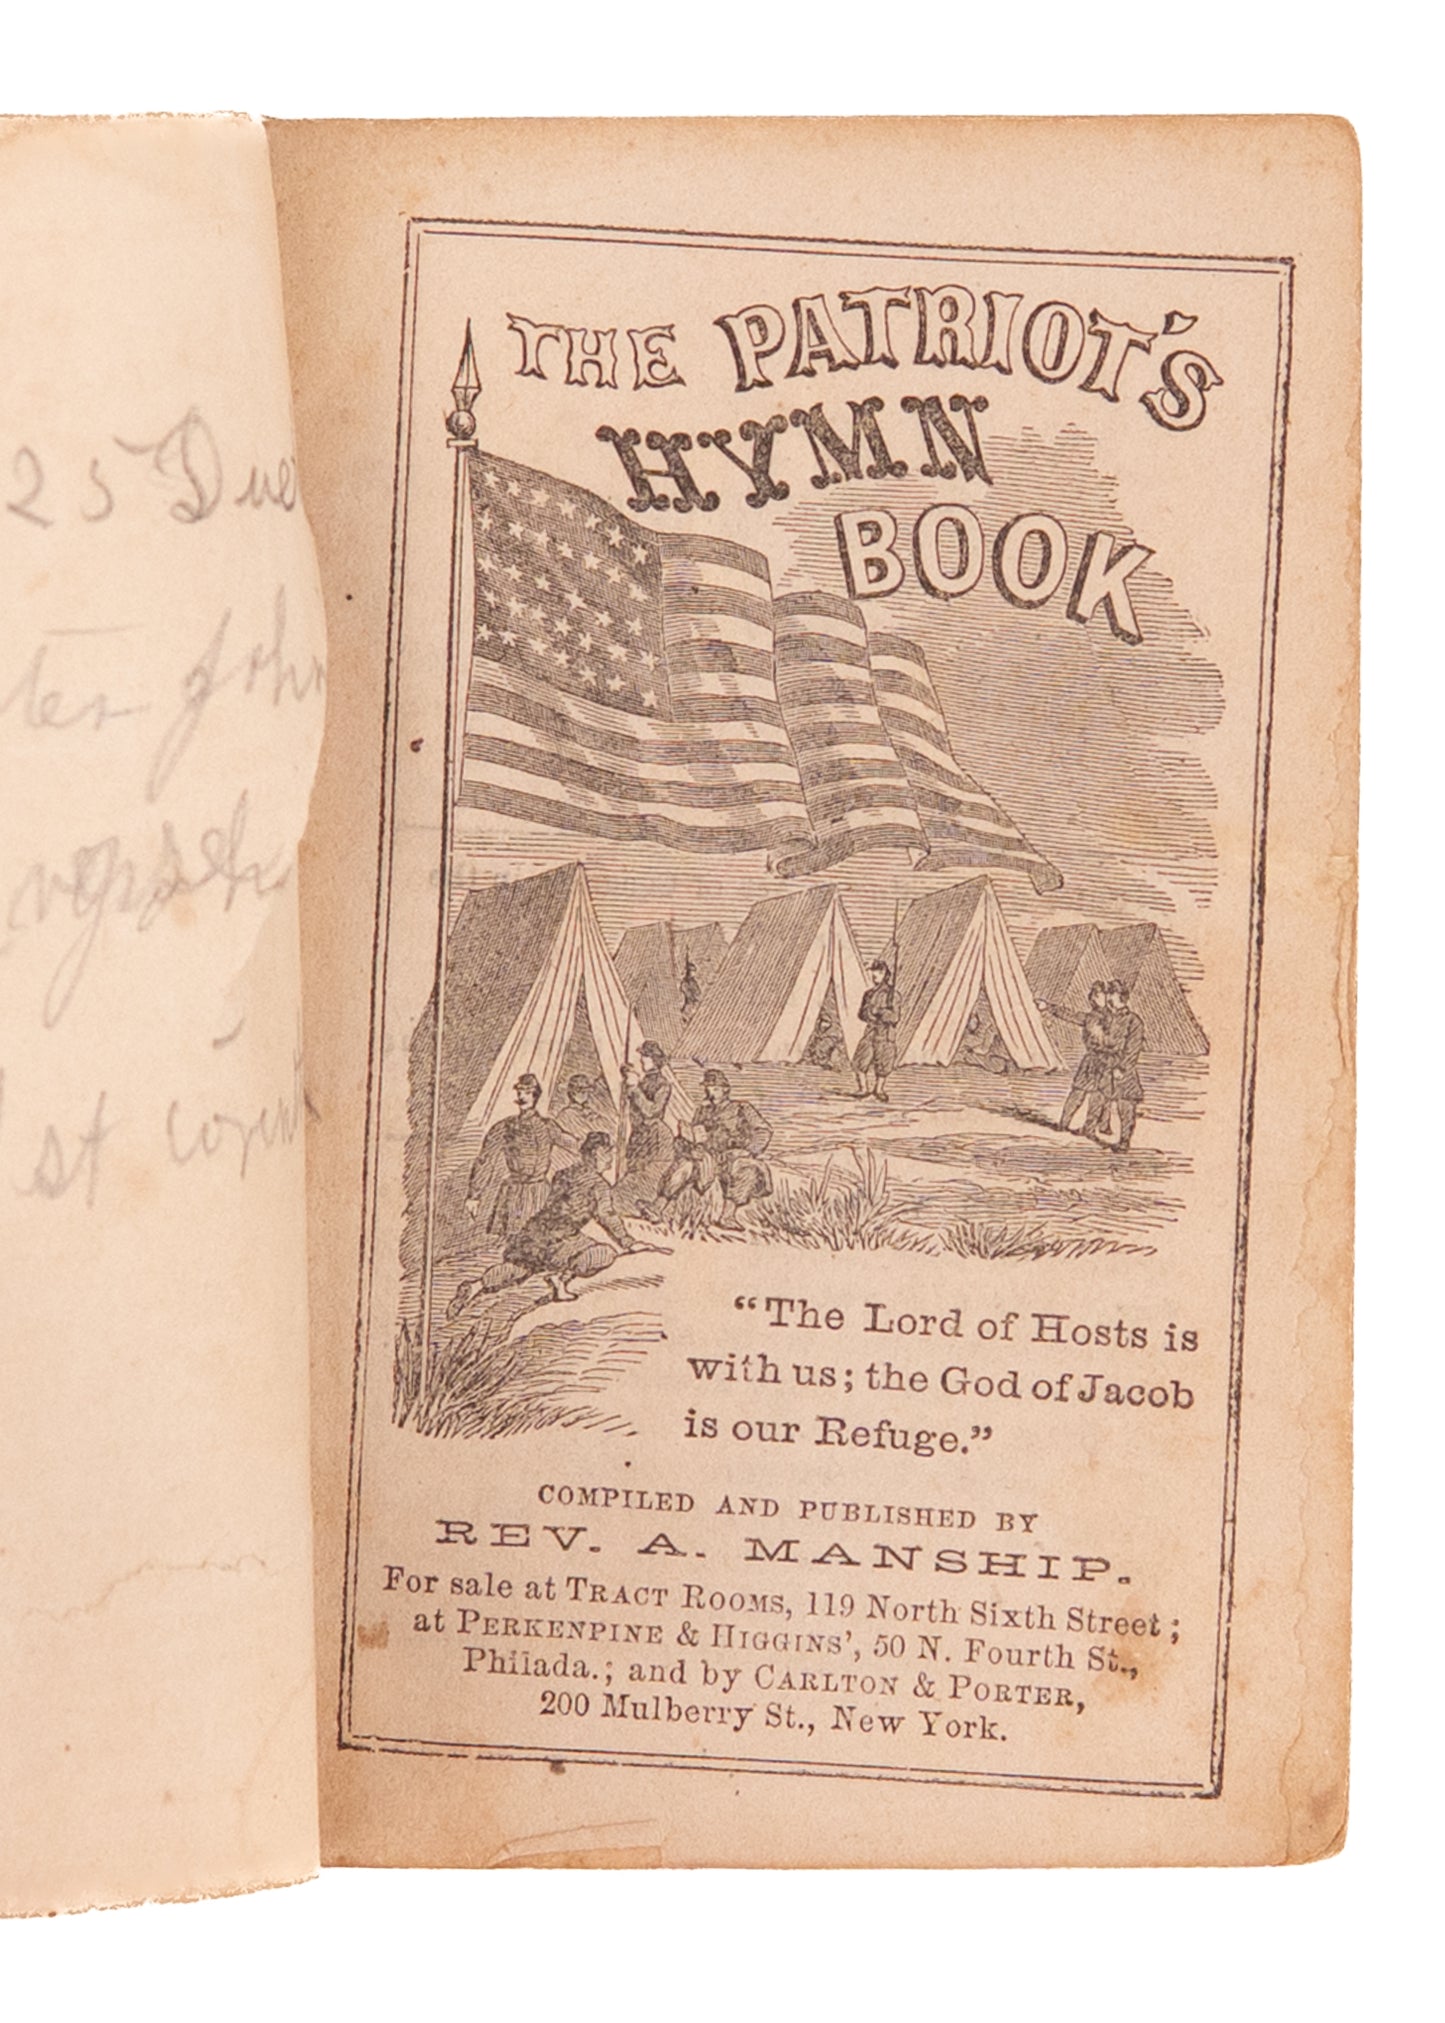 25 Due
John
st
THE PATRIOT'S
HYMN
BOOK
“The Lord of Hosts is
with us; the God of Jacob
is our Refuge.”
COMPILED AND PUBLISHED BY
REV. A. MANSHIP.
For sale at TRACT ROOMS, 119 North Sixth Street;
at PERKENPINE & HIGGINS', 50 N. Fourth St.,
Philada.; and by CARLTON & PORTER,
200 Mulberry St., New York.